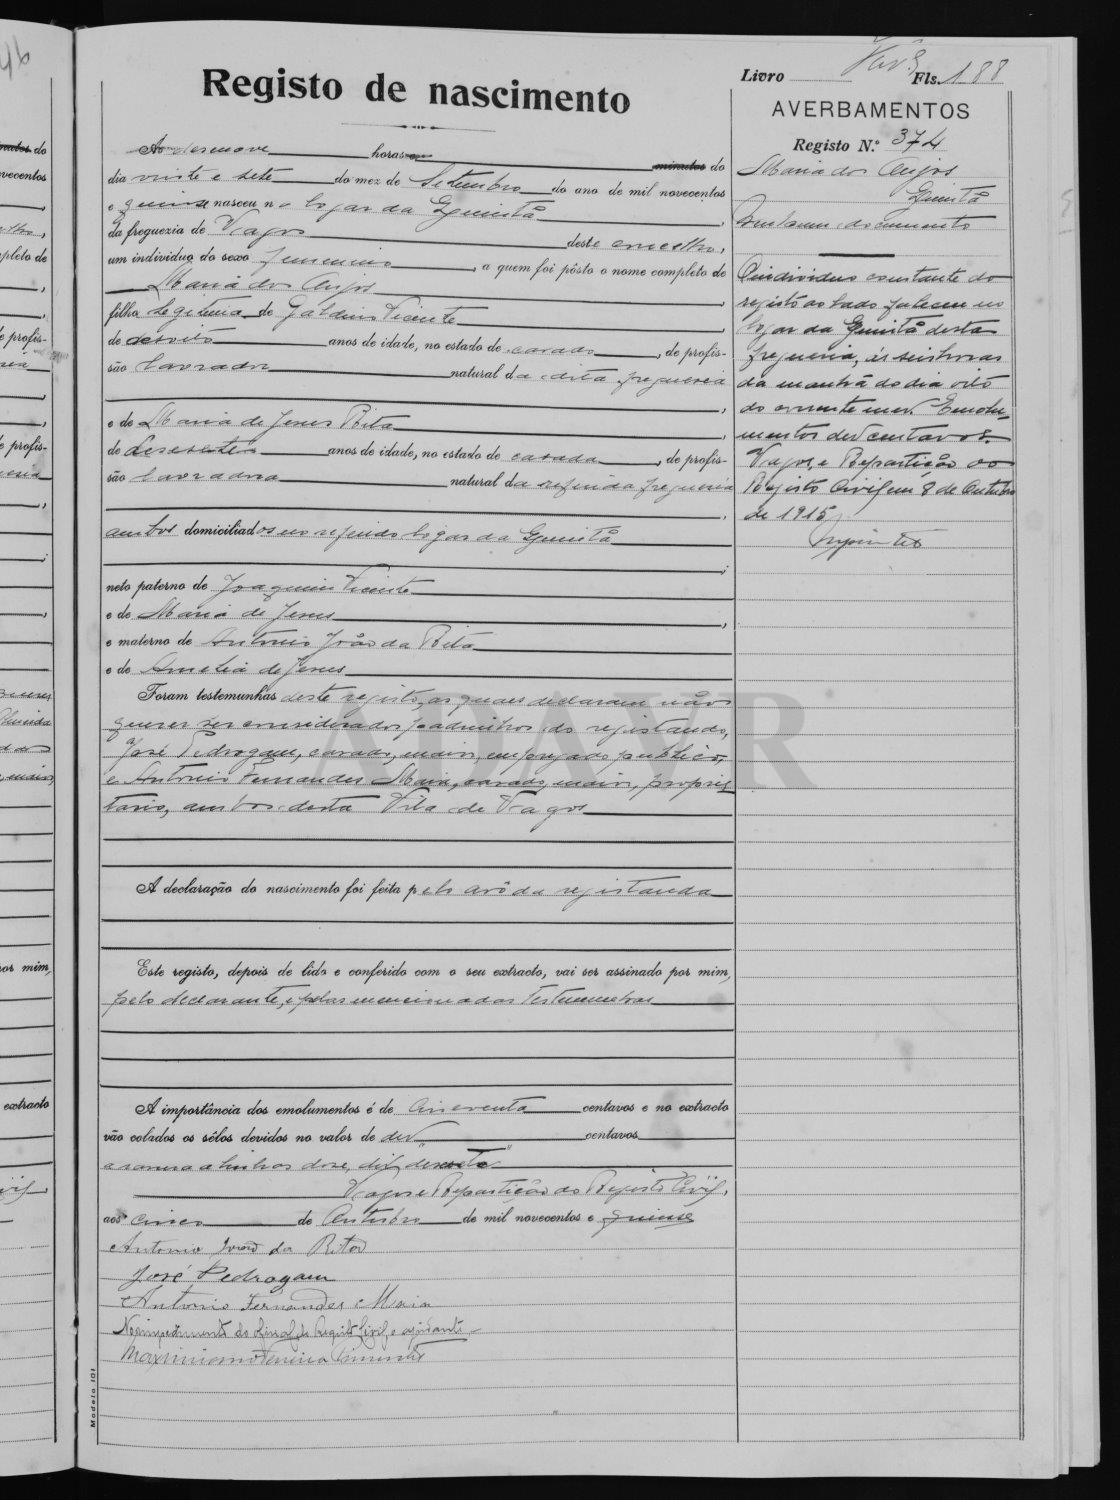 Registo de nascimento
Livro Fls. 188
AVERBAMENTOS
Registo N.º 374
Maria dos Anjos
Quintã
Nenhum documento
O individuo constante do
registo ao lado faleceu no
logar da Quintã desta
freguesia, ás seis horas
da manhã do dia oito
do corrente mez. Emolu-
mentos dez centavos.
Vagos, e Repartição do
Registo Civil em 8 de Outubro
de 1915
Ás desenove horas minutos do
dia vinte e sete do mez de Setembro do ano de mil novecentos
e quinze nasceu no logar da Quintã
da freguezia de Vagos deste concelho,
um individuo do sexo femenino, a quem foi pôsto o nome completo de
Maria dos Anjos,
filha legitima de Galdino Vicente,
de desoito anos de idade, no estado de casado, de profis-
são lavrador natural da dita freguesia,
e de Maria de Jesus Rita,
de desesete anos de idade, no estado de casada, de profis-
são lavradora natural da referida freguesia,
ambos domiciliados no referido logar da Quintã;
neto paterno de Joaquim Vicente
e de Maria de Jesus,
e materno de Antonio João da Rita
e de Amelia de Jesus
Foram testemunhas deste registo, as quaes declaram não
querer ser considerados padrinhos do registando,
José Pedrogam, casado, maior, empregado publico,
e Antonio Fernandes Maia, casado, maior, proprie-
tario, ambos desta Vila de Vagos
A declaração do nascimento foi feita pelo avô da registanda
Este registo, depois de lido e conferido com o seu extracto, vai ser assinado por mim,
pelo declarante, e pelas mencionadas testemunhas
A importância dos emolumentos é de cincoenta centavos e no extracto
vão colados os sêlos devidos no valor de dez centavos
Vagos e Repartição do Registo Civil,
aos cinco de Outubro de mil novecentos e quinze
Antonio João da Rita
José Pedrogam
Antonio Fernandes Maia
No impedimento do oficial do Registo Civil, o ajudante
Modelo 101
ADAVR